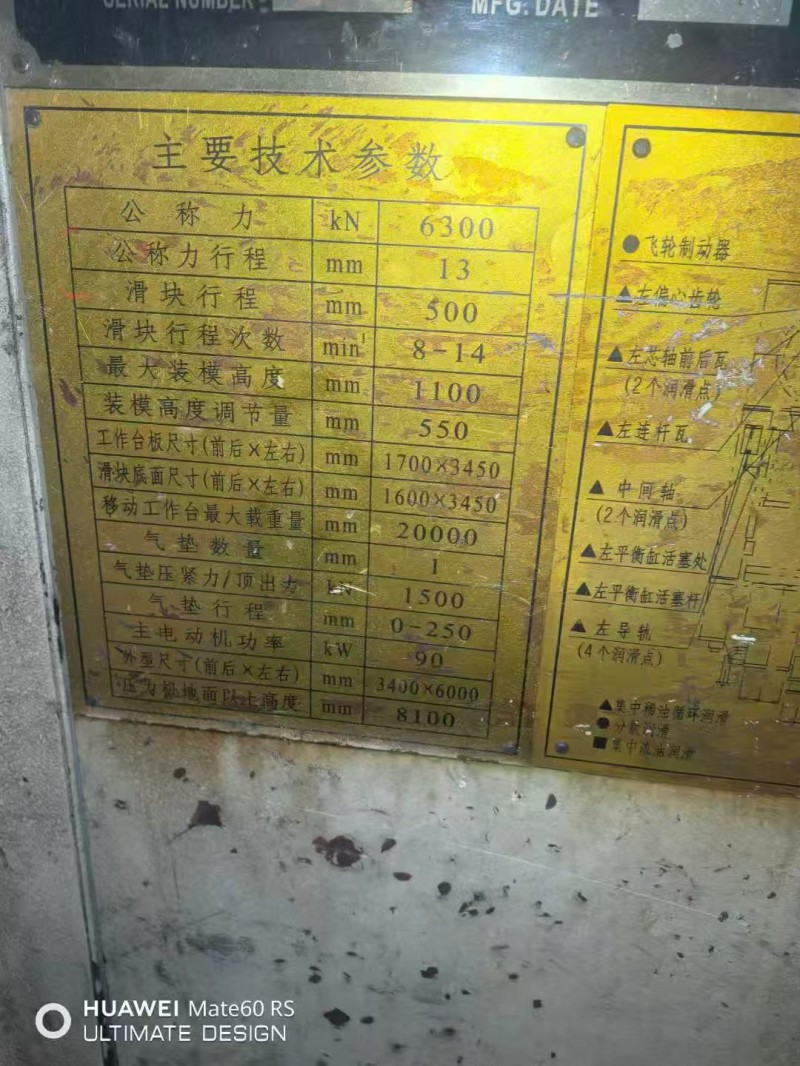 SERIAL NUMBER:
MFG. DATE
主要技术参数
公称力 kN 6300
公称力行程 mm 13
滑块行程 mm 500
滑块行程次数 min¹ 8-14
最大装模高度 mm 1100
装模高度调节量 mm 550
工作台板尺寸(前后×左右) mm 1700×3450
滑块底面尺寸(前后×左右) mm 1600×3450
移动工作台最大载重量 mm 20000
气垫数量 mm 1
气垫压紧力/顶出力 kN 1500
气垫行程 mm 0-250
主电动机功率 kW 90
外型尺寸(前后×左右) mm 3400×6000
压力机地面以上高度 mm 8100
●飞轮制动器
▲左偏心齿轮
▲左芯轴前后瓦
(2个润滑点)
▲左连杆瓦
▲中间轴
(2个润滑点)
▲左平衡缸活塞处
▲左平衡缸活塞杆
▲左导轨
(4个润滑点)
▲集中稀油循环润滑
●分散润滑
■集中浓油润滑
HUAWEI Mate60 RS
ULTIMATE DESIGN